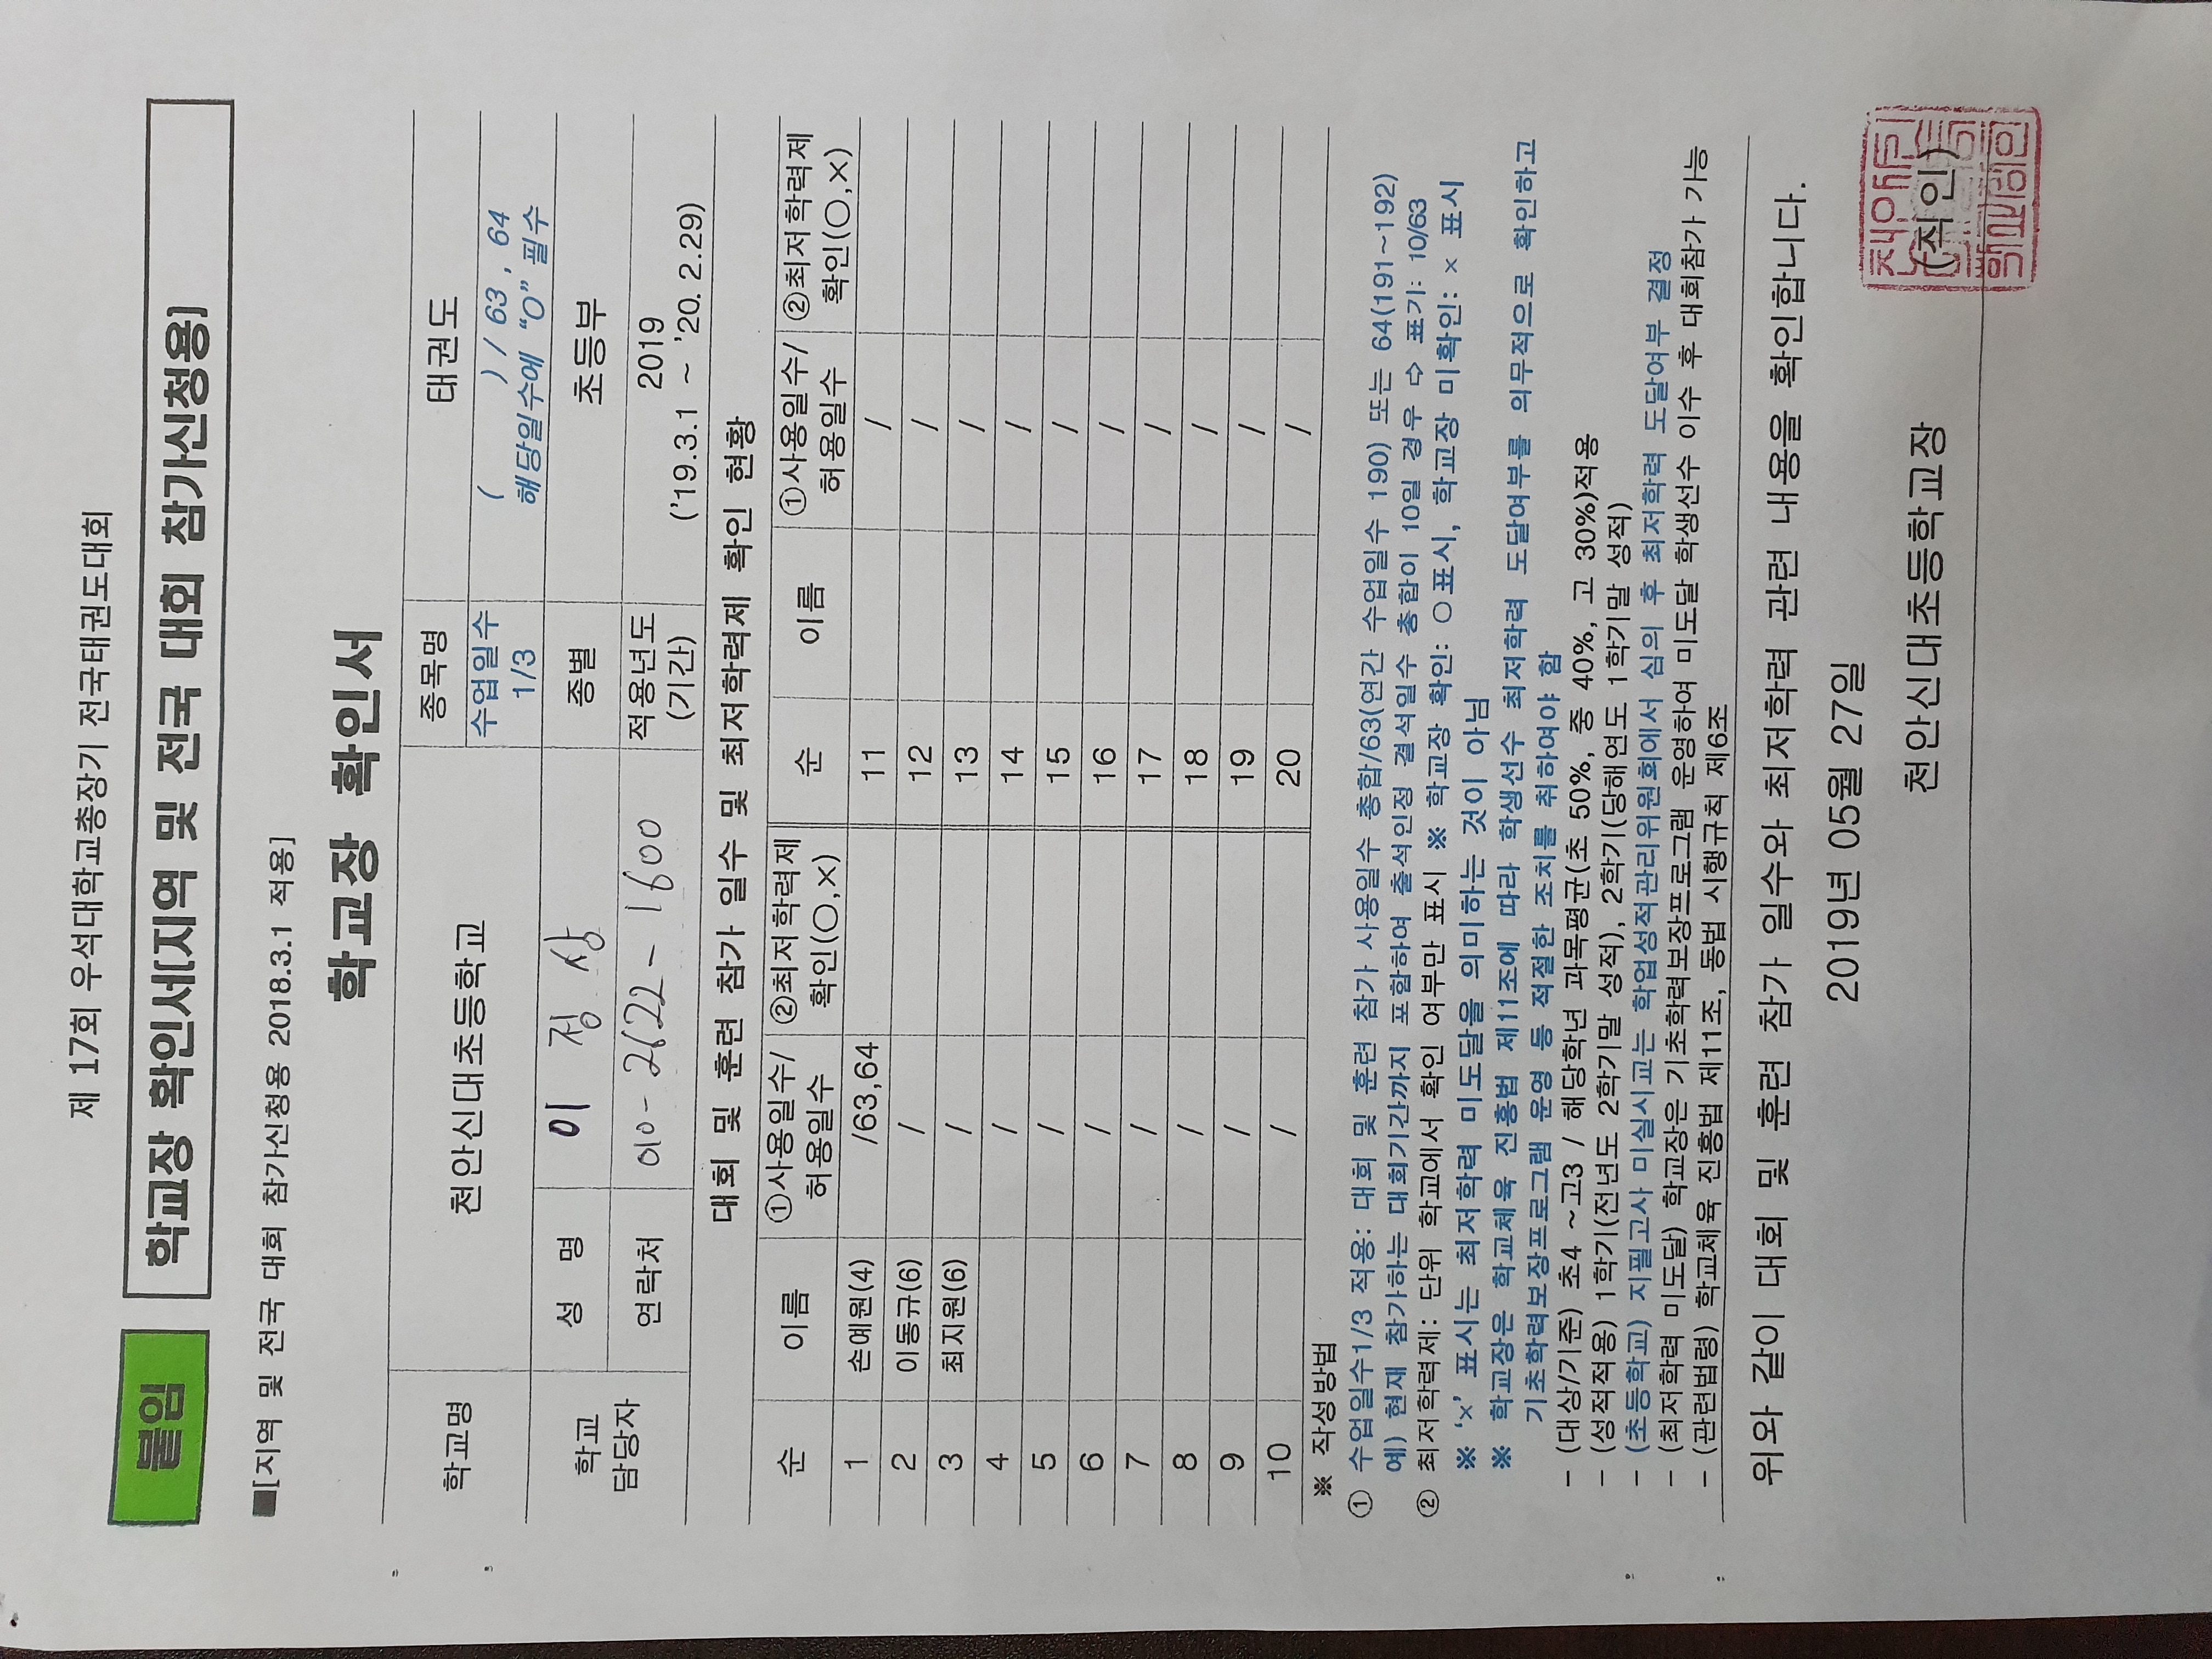 제 17회 우석대학교총장기 전국태권도대회
붙임 학교장 확인서[지역 및 전국 대회 참가신청용]
■[지역 및 전국 대회 참가신청용 2018.3.1 적용]
학교장 확인서
학교명 천안신대초등학교 종목명 태권도
수업일수 1/3 ( ) / 63 , 64
해당일수에 “O” 필수
학교 담당자 성 명 이 정 상 종별 초등부
연락처 010-2622-1600 적용년도 (기간) 2019
('19.3.1 ~ '20. 2.29)
대회 및 훈련 참가 일수 및 최저학력제 확인 현황
순 이름 ①사용일수/허용일수 ②최저학력제 확인(○,×) 순 이름 ①사용일수/허용일수 ②최저학력제 확인(○,×)
1 손예원(4) /63,64 11 /
2 이동규(6) / 12 /
3 최지원(6) / 13 /
4 / 14 /
5 / 15 /
6 / 16 /
7 / 17 /
8 / 18 /
9 / 19 /
10 / 20 /
※ 작성방법
① 수업일수1/3 적용: 대회 및 훈련 참가 사용일수 총합/63(연간 수업일수 190) 또는 64(191~192)
예) 현재 참가하는 대회기간까지 포함하여 출석인정 결석일수 총합이 10일 경우 ⇨ 표기: 10/63
② 최저학력제: 단위 학교에서 확인 여부만 표시 ※ 학교장 확인: ○ 표시, 학교장 미확인: × 표시
※ ‘×’ 표시는 최저학력 미도달을 의미하는 것이 아님
※ 학교장은 학교체육 진흥법 제11조에 따라 학생선수 최저학력 도달여부를 의무적으로 확인하고
기초학력보장프로그램 운영 등 적절한 조치를 취하여야 함
- (대상/기준) 초4 ~고3 / 해당학년 과목평균(초 50%, 중 40%, 고 30%)적용
- (성적적용) 1학기(전년도 2학기말 성적), 2학기(당해연도 1학기말 성적)
- (초등학교) 지필고사 미실시교는 학업성적관리위원회에서 심의 후 최저학력 도달여부 결정
- (최저학력 미도달) 학교장은 기초학력보장프로그램 운영하여 미도달 학생선수 이수 후 대회참가 가능
- (관련법령) 학교체육 진흥법 제11조, 동법 시행규칙 제6조
위와 같이 대회 및 훈련 참가 일수와 최저학력 관련 내용을 확인합니다.
2019년 05월 27일
천안신대초등학교장 (직인)